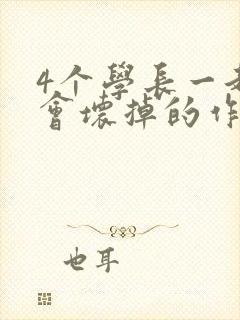 4个學長一
會壞掉的作
也耳